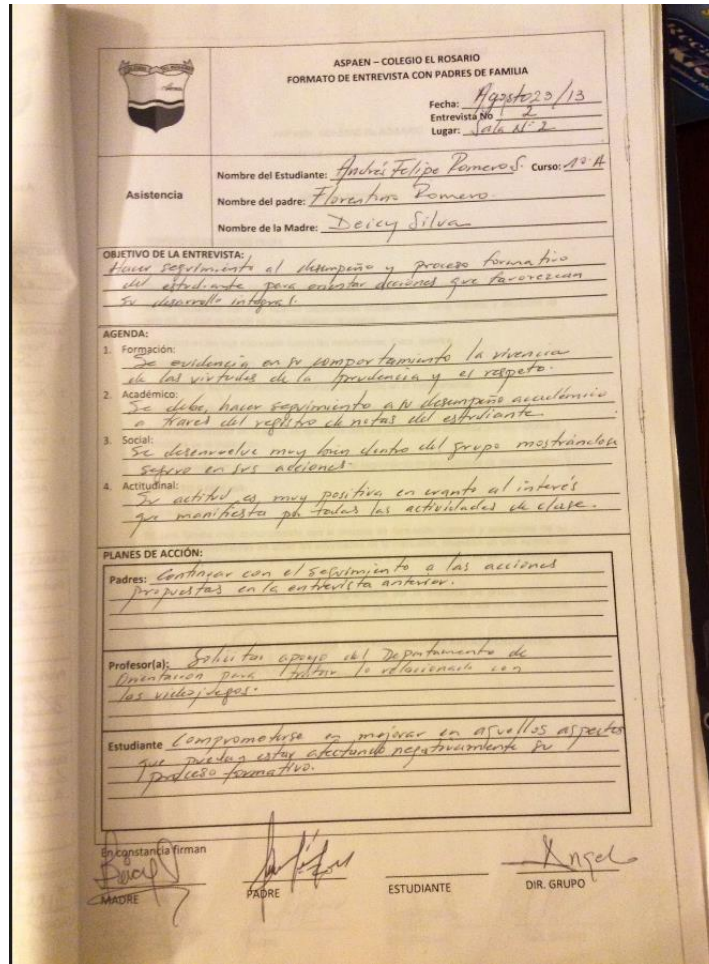 ASPAEN – COLEGIO EL ROSARIO
FORMATO DE ENTREVISTA CON PADRES DE FAMILIA
Fecha: Agosto 23/13
Entrevista No 2
Lugar: Sala Nº 2
Asistencia
Nombre del Estudiante: Andrés Felipe Romero S. Curso: 1º A
Nombre del padre: Florentino Romero.
Nombre de la Madre: Deicy Silva
OBJETIVO DE LA ENTREVISTA:
Hacer seguimiento al desempeño y proceso formativo
del estudiante para orientar acciones que favorezcan
su desarrollo integral.
AGENDA:
1. Formación:
Se evidencia en su comportamiento la vivencia
de las virtudes de la prudencia y el respeto.
2. Académico:
Se debe, hacer seguimiento a su desempeño académico
a traves del registro de notas del estudiante.
3. Social:
Se desenvuelve muy bien dentro del grupo mostrándose
seguro en sus acciones.
4. Actitudinal:
Su actitud es muy positiva en cuanto al interés
que manifiesta por todas las actividades de clase.
PLANES DE ACCIÓN:
Padres: Continuar con el seguimiento a las acciones
propuestas en la entrevista anterior.
Profesor(a): Solicitar apoyo del Departamento de
Orientacion para tratar lo relacionado con
los videojuegos.
Estudiante Comprometerse en mejorar en aquellos aspectos
que puedan estar afectando negativamente su
proceso formativo.
En constancia firman
Deicy S
Angel
MADRE PADRE ESTUDIANTE DIR. GRUPO